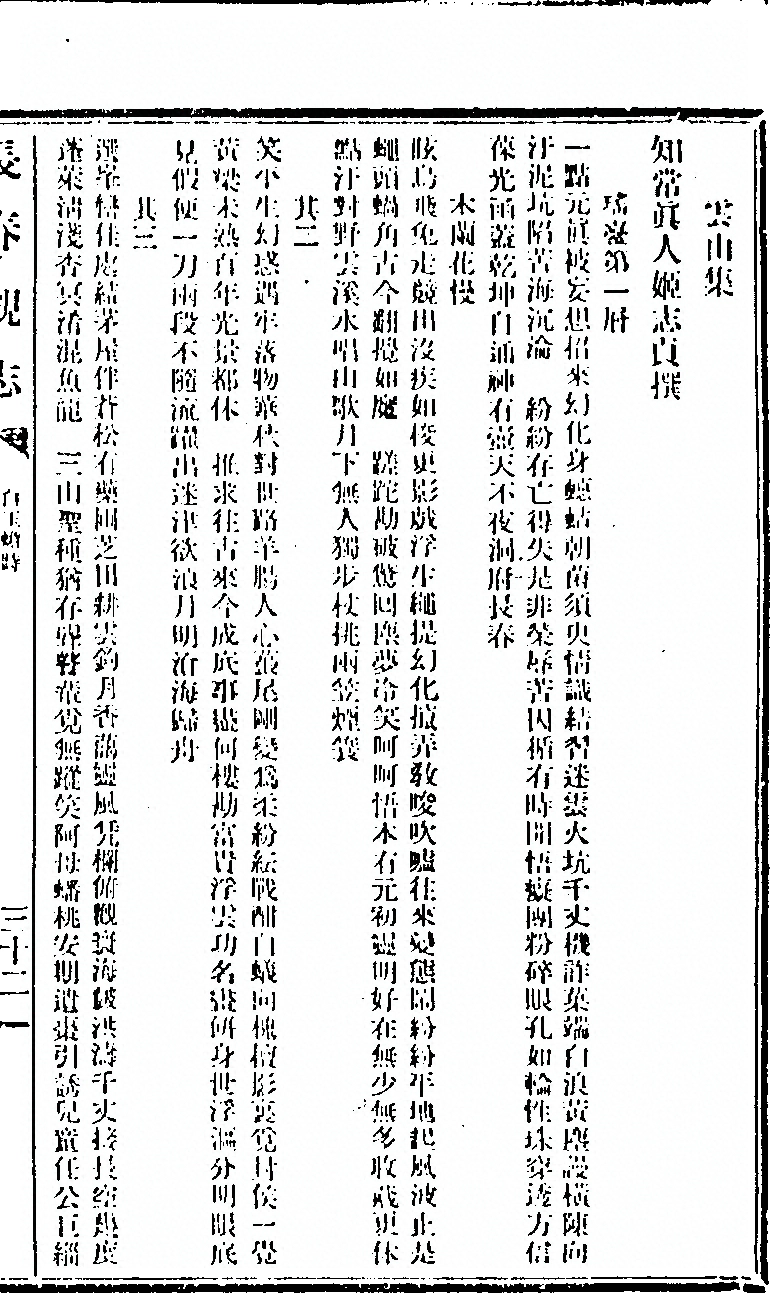 雲山集
知常眞人姬志貞撰
瑤臺第一層
一點元眞被妄想招來幻化身蟪蛄朝菌須臾情識結習迷雲火坑千丈機詐葉端白浪黃塵謾橫陳向
汙泥坑陷苦海沉淪 紛紛存亡得失是非榮辱苦因循有時開悟癡團粉碎眼孔如輪性珠穿透方信
葆光涵蓋乾坤自通神有壺天不夜洞府長春
木蘭花慢
眩烏飛兔走競出沒疾如梭更影戲浮生繩提幻化搬弄敎唆吹噓往來變態鬧紛紛平地起風波止是
蠅頭蝸角古今翻攪如魔 蹉跎勘破驚回塵夢冷笑呵呵悟本有元初靈明好在無少無多收歲更休
點汙對野雲溪水唱山歌月下無人獨步杖挑雨笠煙蓑
其二
笑平生幻惑遇牢落物華秋對世路羊腸人心蠆尾剛變爲柔紛紜戰酣白蟻向槐檀影裏覓封侯一覺
黃粱未熟百年光景都休 推求往古來今成底事蜃何樓勘富貴浮雲功名畫餅身世浮漚分明眼底
見假便一刀兩段不隨流躍出迷津欲浪月明滄海歸舟
其三
選峯巒佳處結茅屋伴蒼松有藥圃芝田耕雲釣月香藹靈風凭欄俯觀貝海皺洪濤千丈接長空幾度
蓬萊淸淺杳冥渚混魚龍 三山聖種猶存羿葉覓無蹤笑阿母蟠桃安期遺棗引誘兒童任公巨緇
長春觀志
白玉蟾詩
三十二